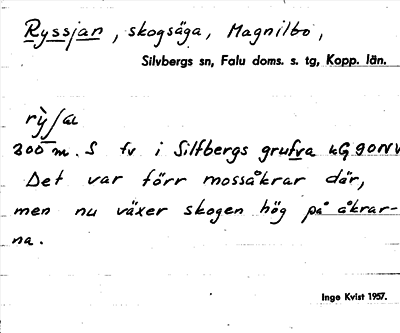 Ryssjan, skogsäga, Magnilbo,
Silvbergs sn, Falu doms. s. tg, Kopp. län.
300 m. S fv i Silfbergs grufva
Det var förr mossåkrar där,
men nu växer skogen hög på åkrar-
na.
Inge Kvist 1957.